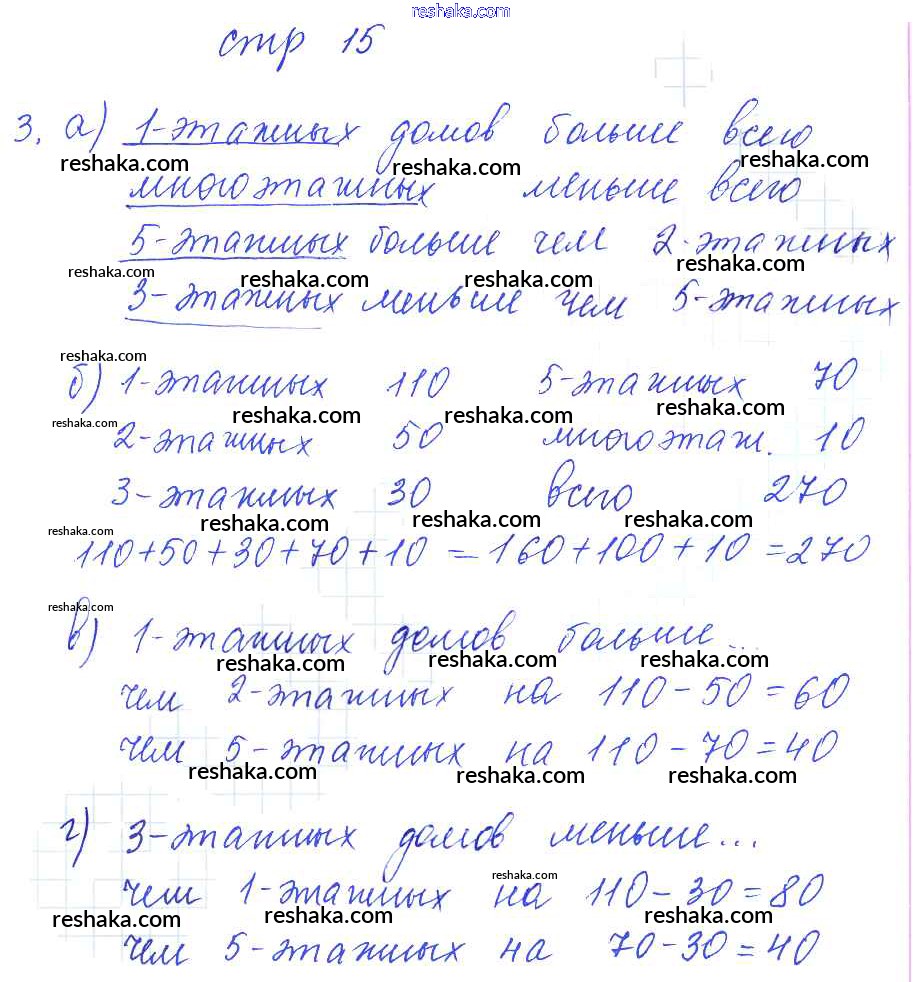 reshaka.com
стр 15
3. а) 1-этажных домов больше всего
reshaka.com reshaka.com reshaka.com
многоэтажных меньше всего
5-этажных больше чем 2-этажных
reshaka.com reshaka.com reshaka.com reshaka.com
3-этажных меньше чем 5-этажных
reshaka.com
б) 1-этажных 110 5-этажных 70
reshaka.com reshaka.com reshaka.com reshaka.com
2-этажных 50 многоэтаж. 10
3-этажных 30 всего 270
reshaka.com reshaka.com reshaka.com reshaka.com
110+50+30+70+10 = 160+100+10 = 270
reshaka.com
в) 1-этажных домов больше...
reshaka.com reshaka.com reshaka.com
чем 2-этажных на 110-50=60
чем 5-этажных на 110-70=40
reshaka.com reshaka.com reshaka.com
г) 3-этажных домов меньше...
reshaka.com
чем 1-этажных на 110-30=80
reshaka.com reshaka.com reshaka.com reshaka.com
чем 5-этажных на 70-30=40